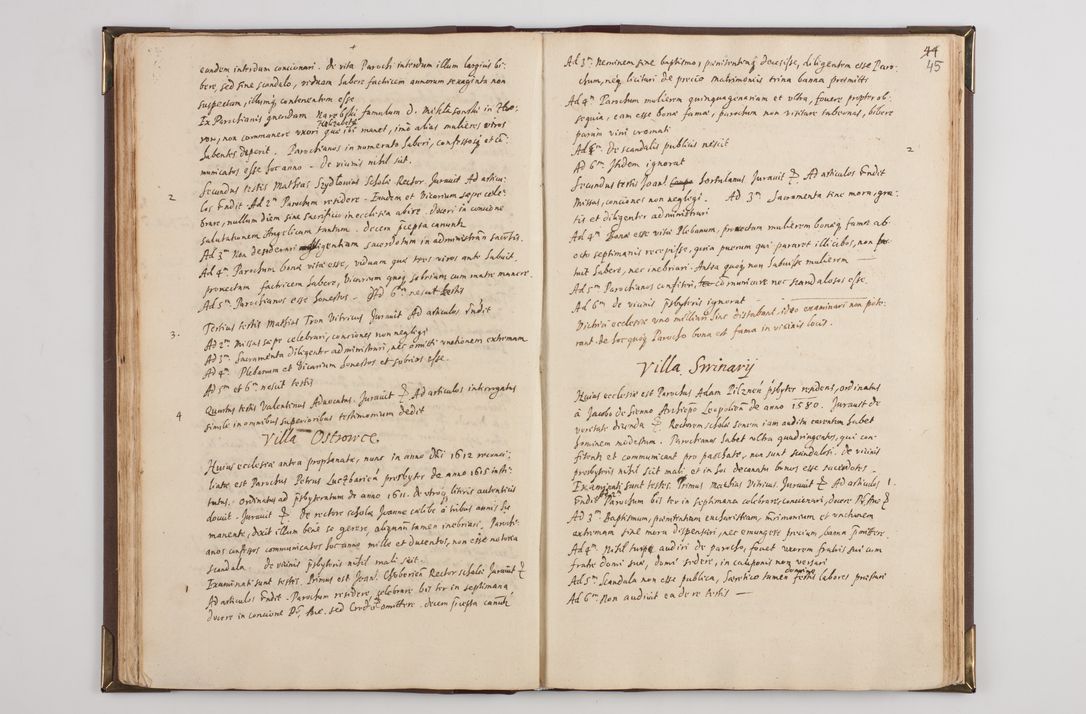 eandem interdum concionari. De vita Parochi interdum illum largius bi-
bere, sed sine scandalo, viduam habere factricem annorum sexaginta non
suspectam, illumque continentem esse.
Ex Parochianis quendam Narebski famulum D. in
non commanere uxori Helizabeta que ibi manet, imò alias mulieres viros
habentes deperit. Parochianos in numerato haberi, confessosque et co-
municatos esse hoc anno. De vicinis nihil scit.
2 Secundus testis Mathias Szydlovius Scholae Rector Juravit Ad articu-
los Ad 2m Parochum residere. Eundem et Vicarium sepe cele-
brare, nullum diem sine sacrificio in ecclesia abire. Doceri in concione
salutationem Angelicam tantum. Decem precepta canunt
Ad 3m Non desiderari diligentiam sacerdotum in administran
Ad 4m Parochum bonae vitae esse, viduam quae tres viros ante habuit,
provectam factricem habere, Vicarium quoque sobrium cum matre manere.
Ad 5m Parochianos esse honestos. Ad 6m nescit testis
3. Tertius testis Mathias Tron Vitricus Juravit Ad articulos
Ad 2m Missas sepe celebrari, conciones non negligi
Ad 3m Sacramenta diligenter administrari, nec omitti unctionem extremam
Ad 4m Plebanum et Vicarium honestos et sobrios esse.
Ad 5m et 6m nescit testis
4 Quartus testis Valentinus Advocatus Juravit Ad articulos interrogatus
simile in omnibus superioribus testimonium dedit
Villa Ostrowce
Huius ecclesiae antea prophanatae, nunc in anno Dni 1612 reconci-
liatae est Parochus Petrus presbyter de anno 1615 insti-
tutus. Ordinatus ad presbyteratum de anno 1611. de utroque literis autenticis
docuit. Juravit De rectore scholae Joanne calibe à tribus annis hic
manente, dixit illum bene se gerere, aliquando tamen inebriari. Parochi-
anos confessos communicatos hoc anno mille et ducentos, non esse notoria
scandala. De vicinis presbyteris nihil mali scit.
1 Examinati sunt testes. Primus est Joan. Rector scholae Juravit
Ad articulos Parochum residere, celebrare bis ter in septimana
docere in concione omittere. decem precepta
44
45
Ad 3m Neminem sine baptismo, poenitentia decessisse, diligentem esse Paro-
chum, neque licitari de precio matrimonii trina banna praemitti
Ad 4m Parochum mulierem quinquagenariam et ultra, fovere propter ob-
sequia, eam esse bonae famae, parochum non visitare tabernas, bibere
parum vini cremati
Ad 5m De scandalis publicis nescit
Ad 6m Itidem ignorat
2 Secundus testis Joan. hortulanus Juravit Ad articulos
Missas, conciones non negligi. Ad 3m Sacramenta sine mora, gra-
tis et diligenter administrari
Ad 4m Bonae esse vitae Plebanum, provectam mulierem bonaeque famae ab
octo septimanis recepisse, quia puerum qui pararet illi cibos, non po-
tuit habere, nec inebriari. Antea quoque non habuisse mulierem
Ad 5m Parochianos confiteri, communicare nec scandalosos esse.
Ad 6m de vicinis presbyteris ignorat
Vitrici ecclesiae uno milliari hinc distabant, ideo examinari non pote-
rant. De hoc quoque Parocho bona est fama in vicinis locis.
Villa Swinarij
Huius ecclesiae est Parochus Adam presbyter residens, ordinatus
à Jacobo de Sienno Archiepo Leopolien de anno 1580. Juravit de
veritate dicenda Rectorem scholae senem iam auditu carentem habet
hominem modestum. Parochianos habet ultra quadringentos, qui con-
fitentur et communicant pro paschate, non sunt scandalosi. De vicinis
presbyteris nihil scit mali, et in hoc decanatu bonos esse sacerdotes.
1. Examinati sunt testes. Primus Mathias Juravit Ad articulos
Parochum bis ter in septimana celebrare, concionari, docere
Ad 3m Baptismum, poenitentiam eucharistiam, matrimonium et unctionem
extremam sine mora dispensari, nec emungere precium, banna
Ad 4m Nihil turpe audiri de parocho, fovet uxorem fratris sui cum
fratre domi suae, domi sedere, in cauponis non versari
Ad 5m Scandala non esse publica, tamen festis labores
Ad 6m Non audivit ea de re testis